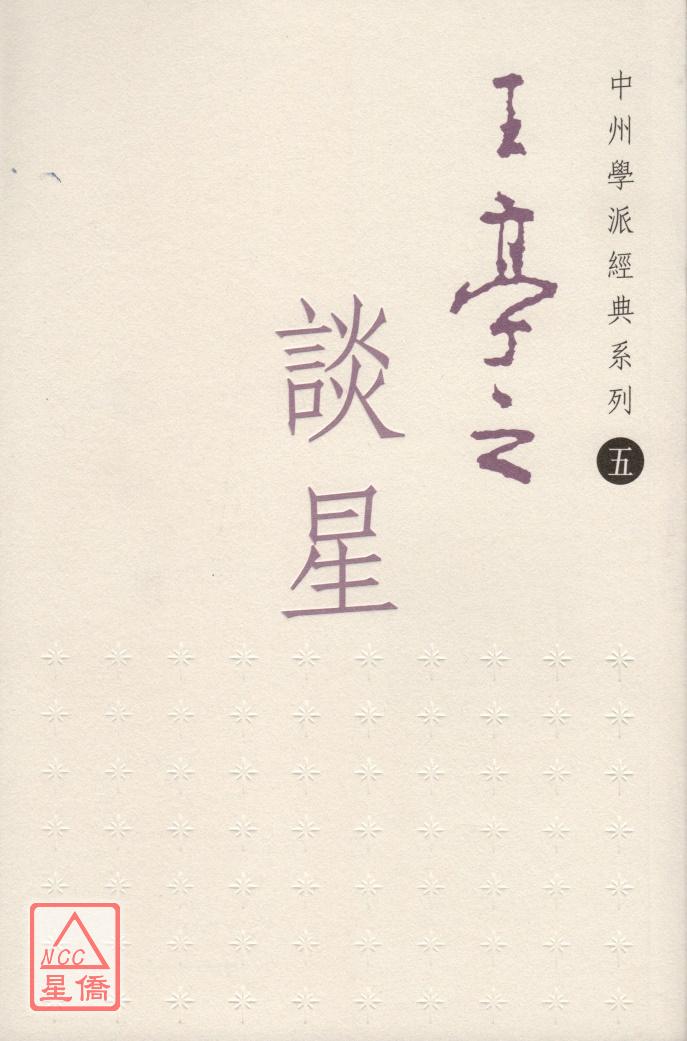 中州學派經典系列 五
王亭之
談星
NCC
星僑